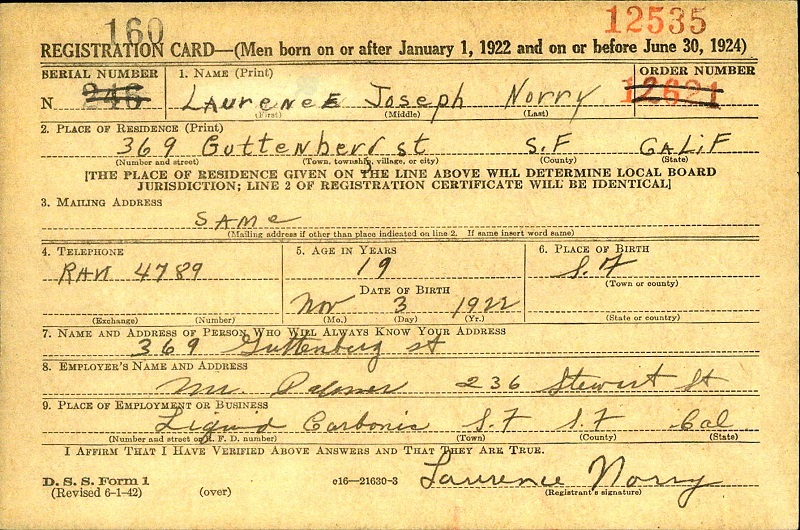 160
12535
REGISTRATION CARD—(Men born on or after January 1, 1922 and on or before June 30, 1924)
SERIAL NUMBER
1. NAME (Print)
ORDER NUMBER
N 246
Laurence Joseph Norry
12621
(First) (Middle) (Last)
2. PLACE OF RESIDENCE (Print)
369 Guttenberg st S.F CALIF
(Number and street) (Town, township, village, or city) (County) (State)
[THE PLACE OF RESIDENCE GIVEN ON THE LINE ABOVE WILL DETERMINE LOCAL BOARD
JURISDICTION; LINE 2 OF REGISTRATION CERTIFICATE WILL BE IDENTICAL]
3. MAILING ADDRESS
SAMe
(Mailing address if other than place indicated on line 2. If same insert word same)
4. TELEPHONE
RAN 4789
(Exchange) (Number)
5. AGE IN YEARS
19
DATE OF BIRTH
Nov 3 1922
(Mo.) (Day) (Yr.)
6. PLACE OF BIRTH
S.F
(Town or county)
(State or country)
7. NAME AND ADDRESS OF PERSON WHO WILL ALWAYS KNOW YOUR ADDRESS
369 Guttenberg st
8. EMPLOYER'S NAME AND ADDRESS
Mr. Palmer 236 Stewart St
9. PLACE OF EMPLOYMENT OR BUSINESS
Liquid Carbonic S.F S.F Cal
(Number and street or R. F. D. number) (Town) (County) (State)
I AFFIRM THAT I HAVE VERIFIED ABOVE ANSWERS AND THAT THEY ARE TRUE.
D. S. S. Form 1
(Revised 6-1-42) (over) c16—21630-3
Laurence Norry
(Registrant's signature)